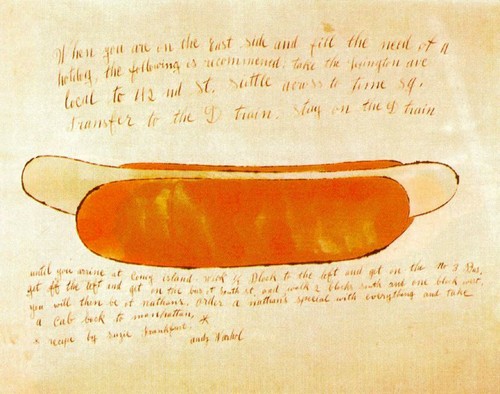 When you are on the East side and fill the need of a
hotdog, the following is recommened: take the lexington ave
local to 42 nd St. Suttle across to Time Sq.
Transfer to the D train. Stay on the D train
until you arrive at Coney island. walk ½ block to the left and get on the No 3 Bus,
get off the left and get on the bus at 8th st, and walk 2 blocks south and one block west.
you will then be at nathan's. Order a nathan's special with everything and take
a cab back to manhattan. *
* recipe by suzie frankfurt.
andy Warhol